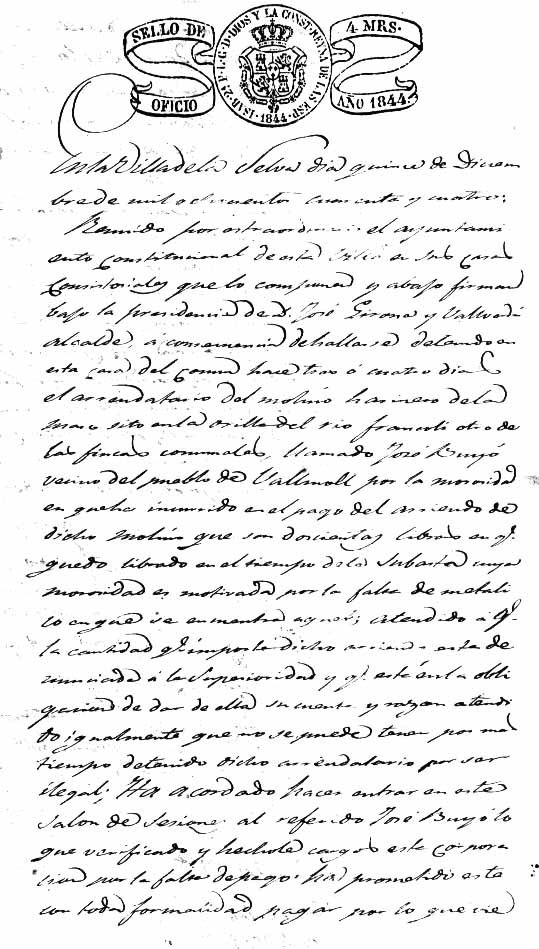 SELLO DE OFICIO
ISAB. 2ª P. L. G. D. DIOS Y LA CONST. REYNA DE LAS ESP. 1844
4 MRS. AÑO 1844
En la Villa de la Selva dia quince de Diciem
bre de mil ochocientos cuarenta y cuatro:
Reunido por estraordinario el ayuntami
ento Constitucional de esta Villa en sus Casas
Consistoriales que lo componen y abajo firman
bajo la presidencia de D. José Girona y Vallverdú
alcalde, á consecuencia de hallarse detenido en
esta casa del Comun hace tres ó cuatro dias
el arrendatario del molino harinero de la
sito en la orilla del rio francolí otro de
las fincas comunales, llamado José Buyó
vecino del pueblo de Vallmoll por la morosidad
en que ha incurrido en el pago del arriendo de
dicho molino que son doscientas libras en q.
quedó librado en el tiempo de la Subasta cuya
morosidad es motivada por la falta de metali
co en que se encuentra aquel; atendido á q.
la cantidad q. importa dicho arriendo esta de
nunciada á la Superioridad y q. está en la obli
gacion de dar de ella su cuenta y razon atendi
do igualmente que no se puede tener por mas
tiempo detenido dicho arrendatario por ser
ilegal; Ha acordado hacer entrar en este
Salon de Sesiones al referido José Buyó lo
que verificado y hechole cargos esta corpora
cion por la falta de pago: ha prometido este
con toda formalidad pagar por lo que vie